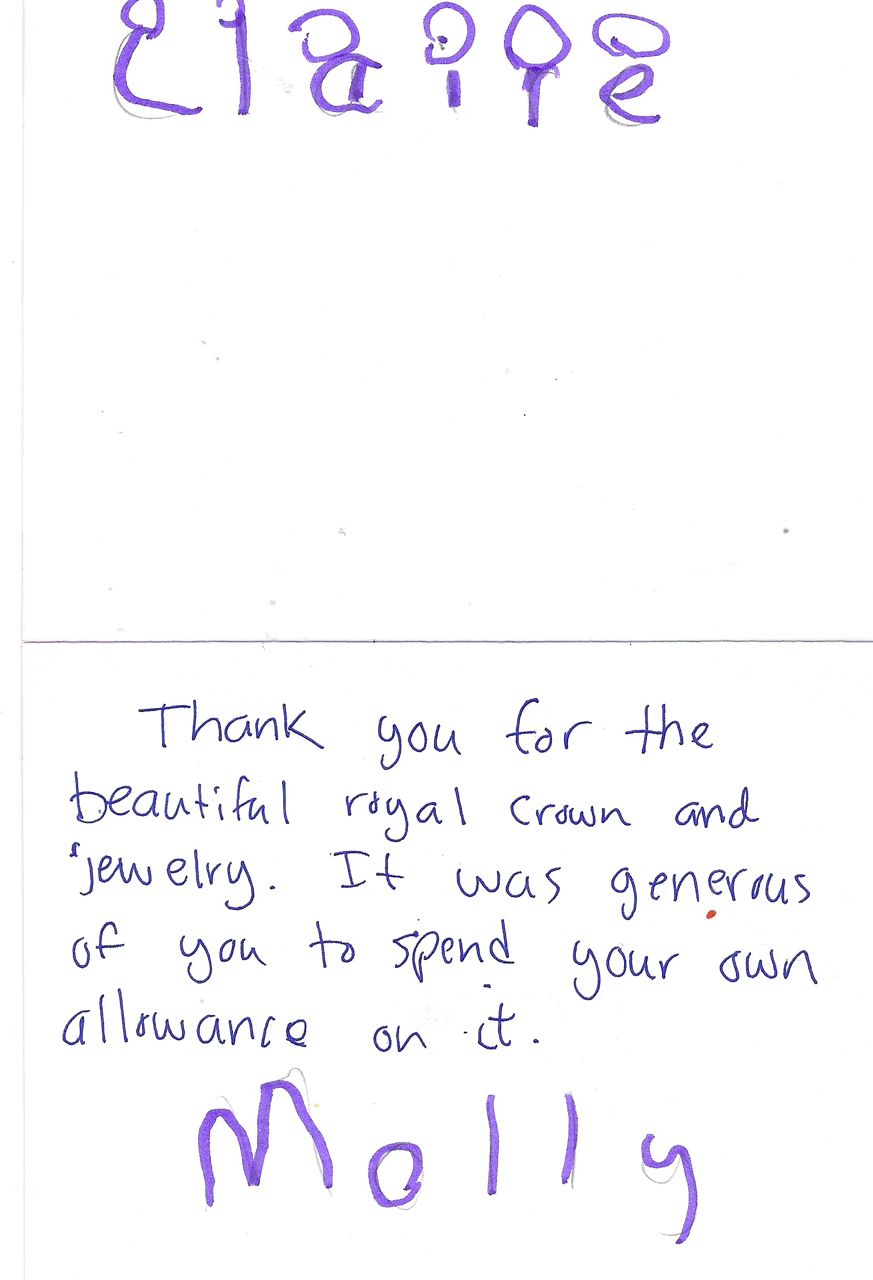 Claire
Thank you for the
beautiful royal crown and
jewelry. It was generous
of you to spend your own
allowance on it.
Molly